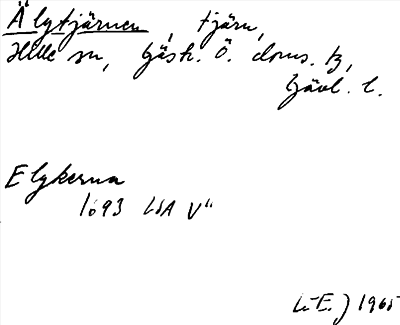 Älgtjärnen, tjärn,
Hille sn, Gästr. Ö. doms. tg,
Gävl. l.
Elgkerna
1693 LSA V"
1965